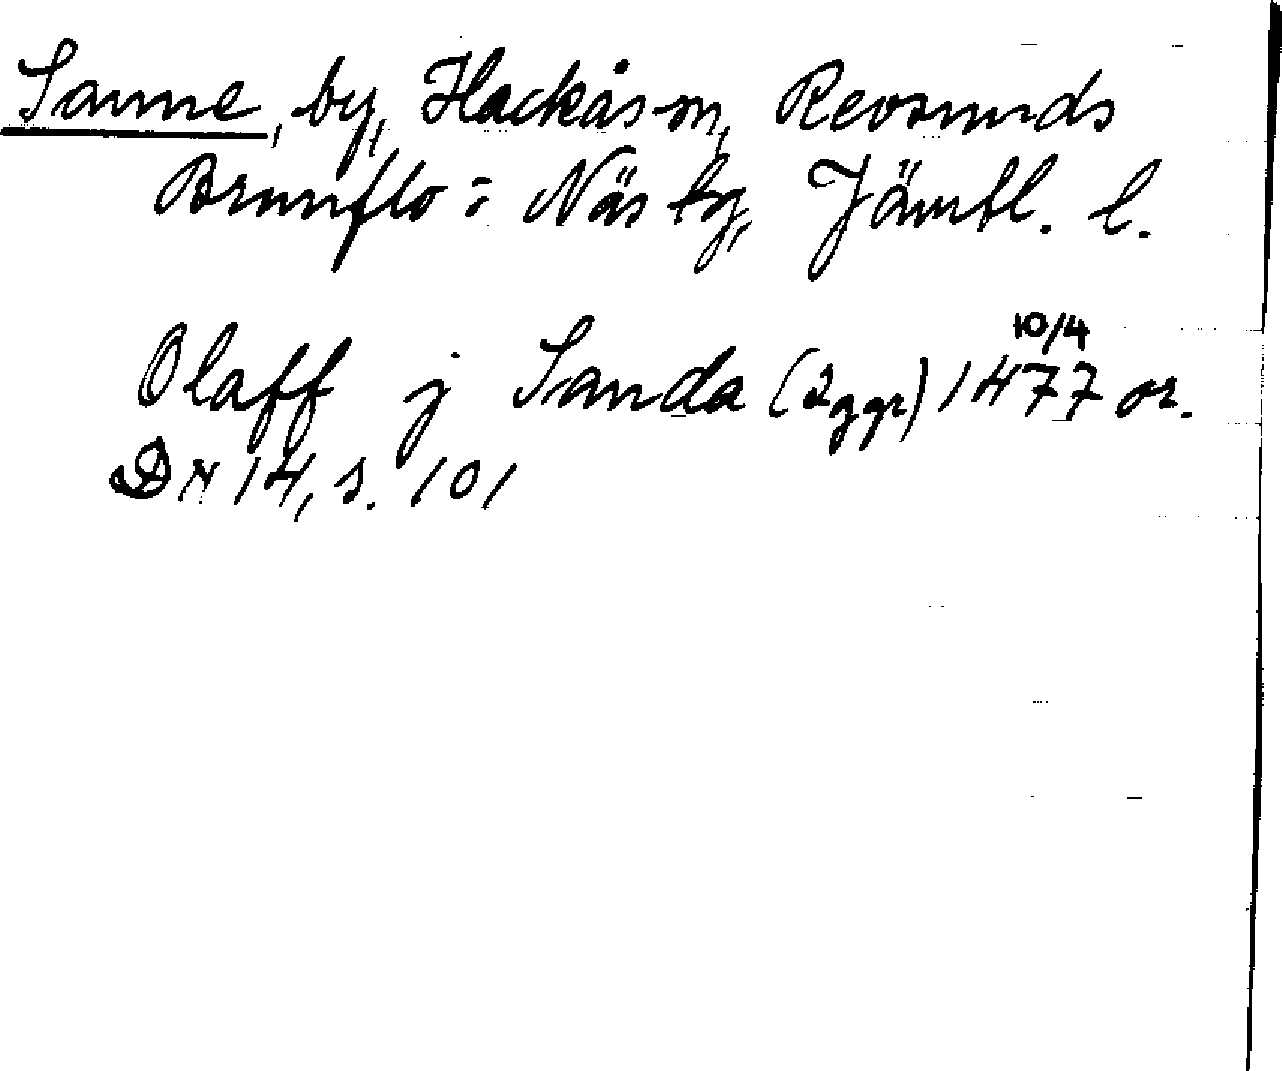 Sanne, by, Hackås sn, Revsunds
Brunflo o Näs tg, Jämtl. l.
10/4
Olaff j Sanda (2 ggr) 1477 or.
DN 14, s. 101